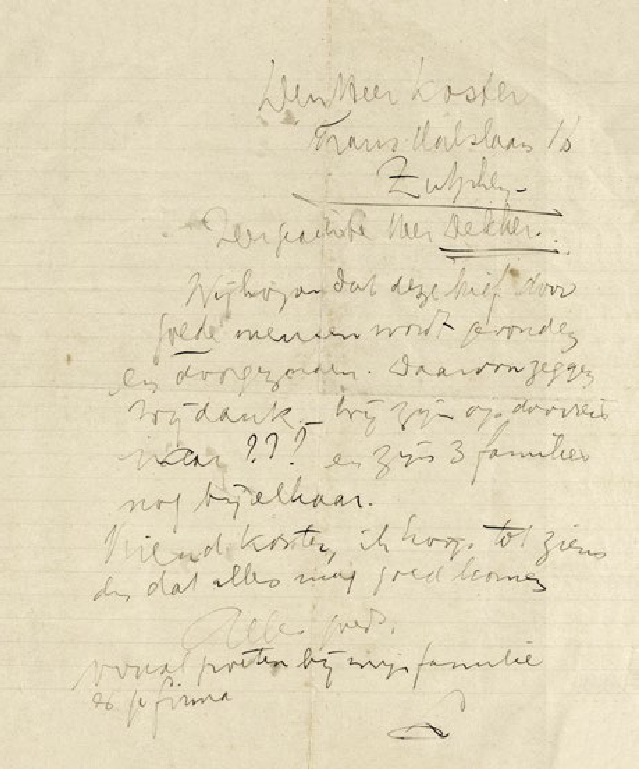 Den Heer Koster
Frans Halslaan 16
Zutphen
Zeer geachte Heer Dekker.
Wij hopen dat deze brief door
goede mensen wordt gevonden
en doorgezonden. Daarvoor zeggen
wij dank. Wij zijn op doorreis
naar ??? en zijn 3 families
nog bij elkaar.
Vriend Koster, ik hoop tot ziens
en dat alles mag goed komen
Alles goeds.
vooral groeten bij mijn familie
en firma